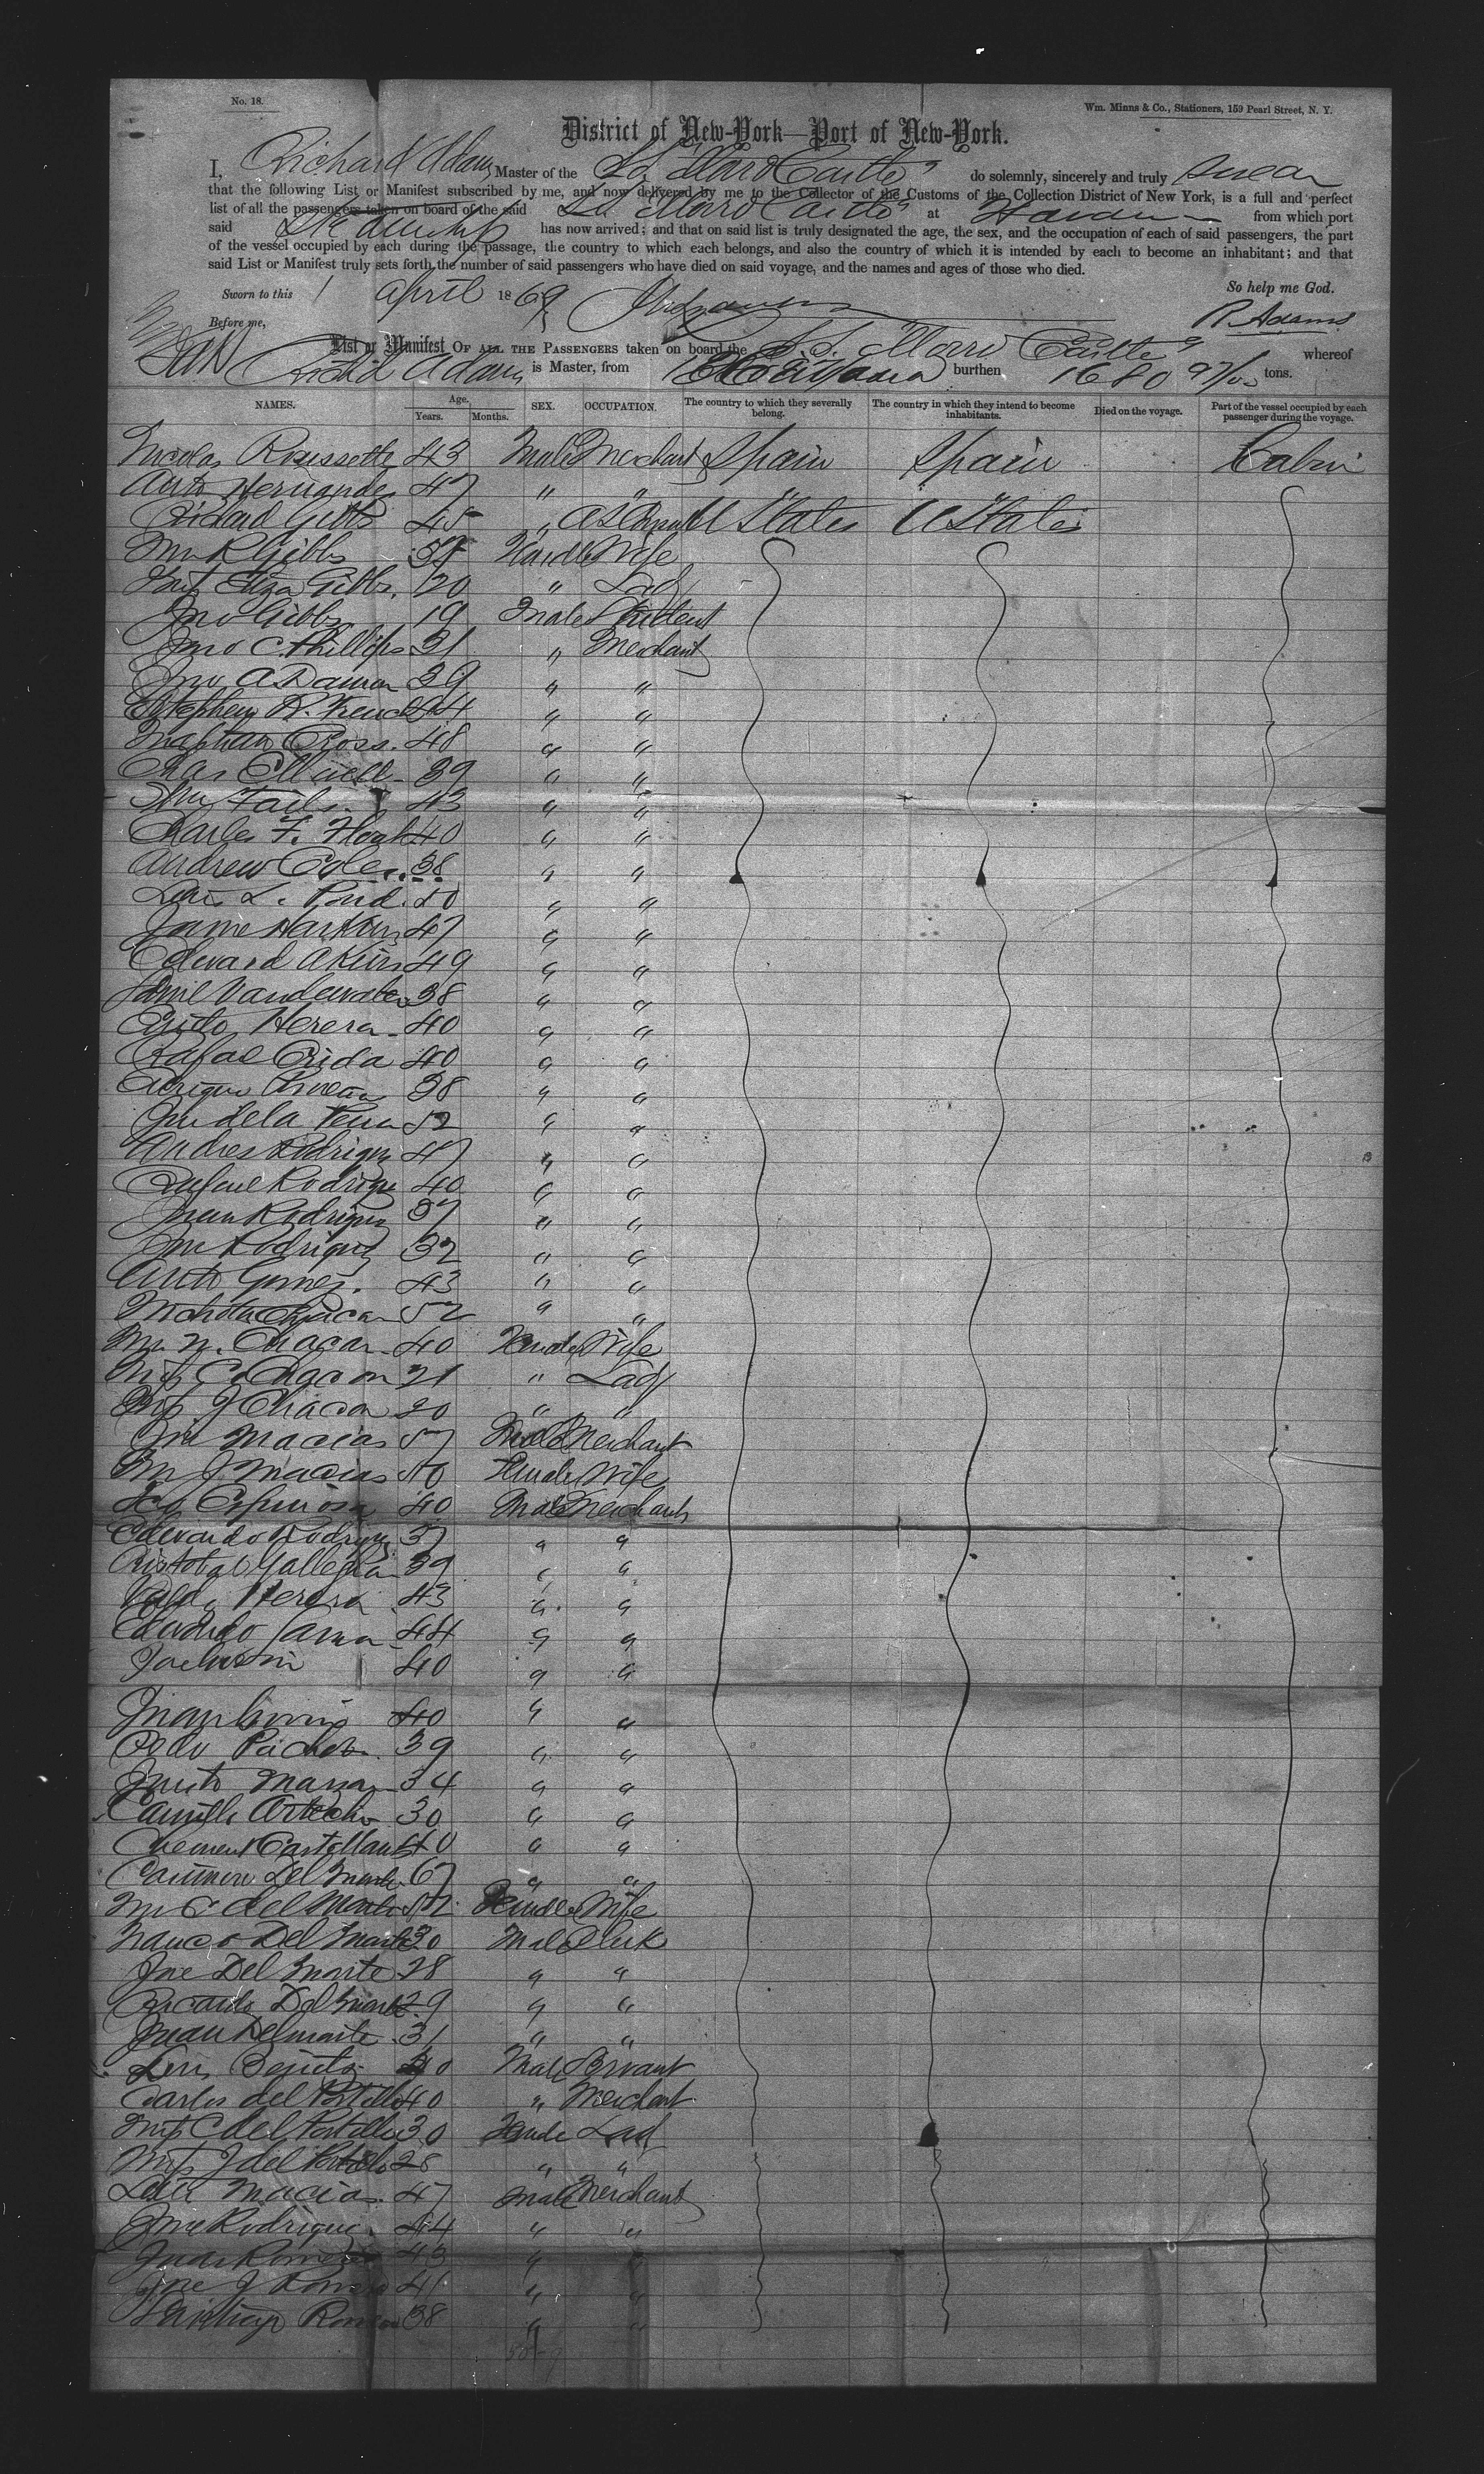 No. 18.
Wm. Minns & Co., Stationers, 159 Pearl Street, N. Y.
District of New-York—Port of New-York.
I, Richard Adams Master of the "SS Morro Castle" do solemnly, sincerely and truly swear
that the following List or Manifest subscribed by me, and now delivered by me to the Collector of the Customs of the Collection District of New York, is a full and perfect
list of all the passengers taken on board of the said SS "Morro Castle" at Havana from which port
said Steamship has now arrived; and that on said list is truly designated the age, the sex, and the occupation of each of said passengers, the part
of the vessel occupied by each during the passage, the country to which each belongs, and also the country of which it is intended by each to become an inhabitant; and that
said List or Manifest truly sets forth the number of said passengers who have died on said voyage, and the names and ages of those who died.
Sworn to this 1 April 1869 So help me God.
Before me, R Adams
List or Manifest OF ALL THE PASSENGERS taken on board the S.S. "Morro Castle" whereof
Richd Adams is Master, from Havana burthen 1680 97/00 tons.
NAMES. Age. Years. Months. SEX. OCCUPATION. The country to which they severally belong. The country in which they intend to become inhabitants. Died on the voyage. Part of the vessel occupied by each passenger during the voyage.
Nicolas Roussette 43 Male Merchant Spain Spain Cabin
Anto Hernandes 47 " " " "
Richard Gibbs 45 " U States U States
Mrs R Gibbs Female Wife
Miss Eliza Gibbs. 20 " Lady
Jno Gibbs 19 Male Student
Jno C. Phillips 31 " Merchant
Jno A Damon 39 " "
Stephen R. French 44 " "
Nathan Cross. 48 " "
Chas 39 " "
43 " "
Charles F. 40 " "
Andrew Coles. 38 " "
L. Pond. 50 " "
James 47 " "
Edward Akins 49 " "
Vandewater 38 " "
Herera 40 " "
Rafael 40 " "
38 " "
Jose de la Pena 52 " "
Andres Rodriguez 47 " "
Rafael Rodriguez 40 " "
Juan Rodriguez 37 " "
Jose Rodriguez 32 " "
Anto Gomez. 43 " "
Nicholas Chacon 52 " "
Mrs N. Chacon 40 Female Wife
Miss C. Chacon 21 " Lady
Miss J Chacon 20 " "
Jose Macias 57 Male Merchant
Mrs J. Macias 50 Female Wife
Fco Espinosa 40 Male Merchant
Edwardo Rodriguez 37 " "
Cristobal 39 " "
Herera 43 " "
Eduardo 44 " "
40 " "
Juan 40 " "
Pedro 39 " "
Justo 34 " "
Camillo 30 " "
Clement Castellanos 40 " "
Casimiro Del Monte 67 " "
Mrs C del Monte 52 Female Wife
Del Monte 30 Male Clerk
Jose Del Monte 28 " "
Ricardo Del Monte 29 " "
Juan Delmonte 31 " "
Male Servant
Carlos del Portillo 40 " Merchant
Miss C del Portillo 30 Female Lady
Miss J del Portillo 28 " "
Luis Macias 47 Male Merchant
Jose Rodriguez 44 " "
Juan Romero 43 " "
Jose J Romero 41 " "
Santiago Romero 38 " "